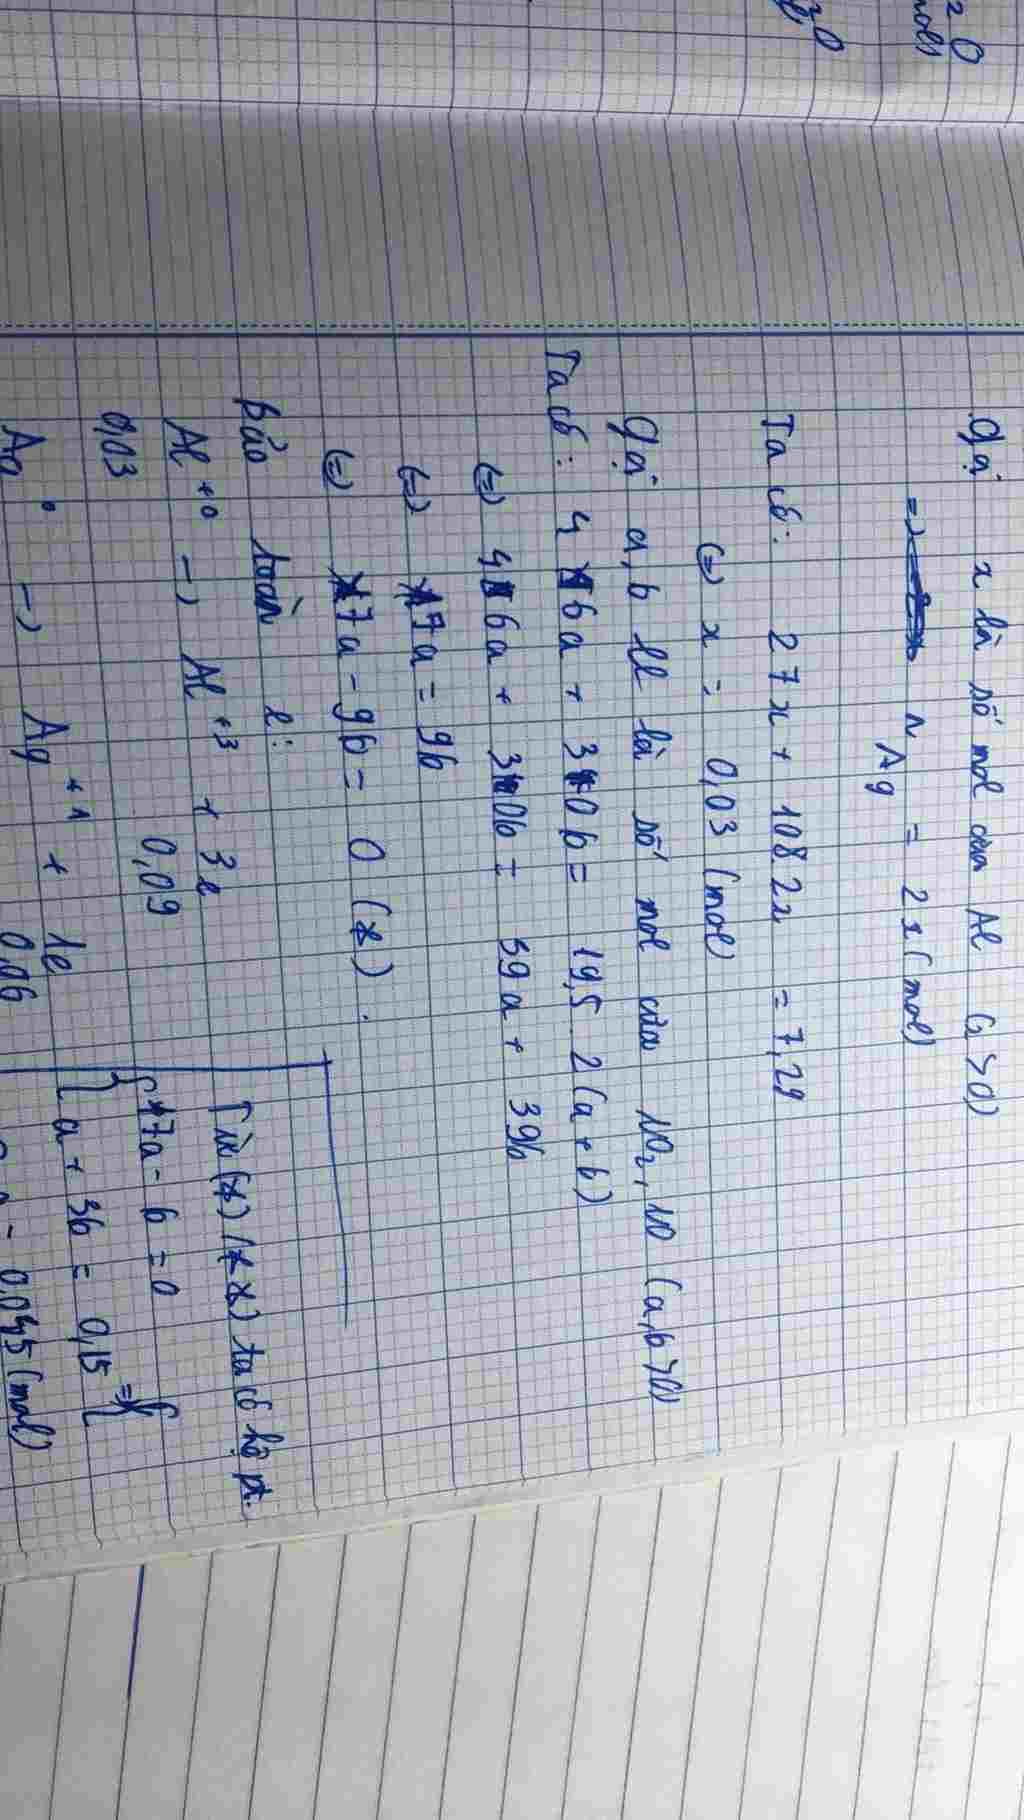 2 0
Gọi x là số mol của Al (x > 0)
=> n Ag = 2x (mol)
Ta có: 27x + 108.2x = 7,29
(=) x = 0,03 (mol)
Gọi a, b ll là số mol của NO2, NO (a, b > 0)
Ta có: 46a + 30b = 19,5.2(a + b)
(=) 46a + 30b = 39a + 39b
(=) 7a = 9b
(=) 7a - 9b = 0 (*).
Bảo toàn e:
Al+0 -> Al+3 + 3e
0,03 0,09
Ag0 -> Ag+1 + 1e
0,06
Từ (*) (**) ta có hệ pt.
{ 7a - b = 0
{ a + 3b = 0,15 => {
0,045 (mol)